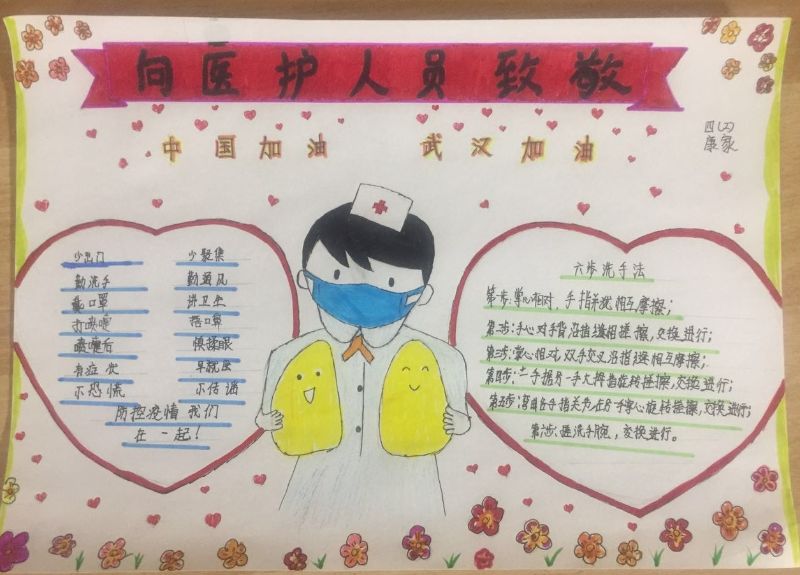 向医护人员致敬
中国加油 武汉加油
四(2)
康家
少出门 少聚集
勤洗手 勤通风
戴口罩 讲卫生
打喷嚏 捂口鼻
喷嚏后 慎揉眼
有症状 早就医
不恐慌 不信谣
防控疫情 我们
在一起!
六步洗手法
第一步:掌心相对,手指并拢相互摩擦;
第二步:手心对手背沿指缝相搓擦,交换进行;
第三步:掌心相对,双手交叉沿指缝相互摩擦;
第四步:一手握另一手大拇指旋转搓擦,交换进行;
第五步:弯曲各手指关节,在另一手掌心旋转搓擦,交换进行;
第六步:搓洗手腕,交换进行。